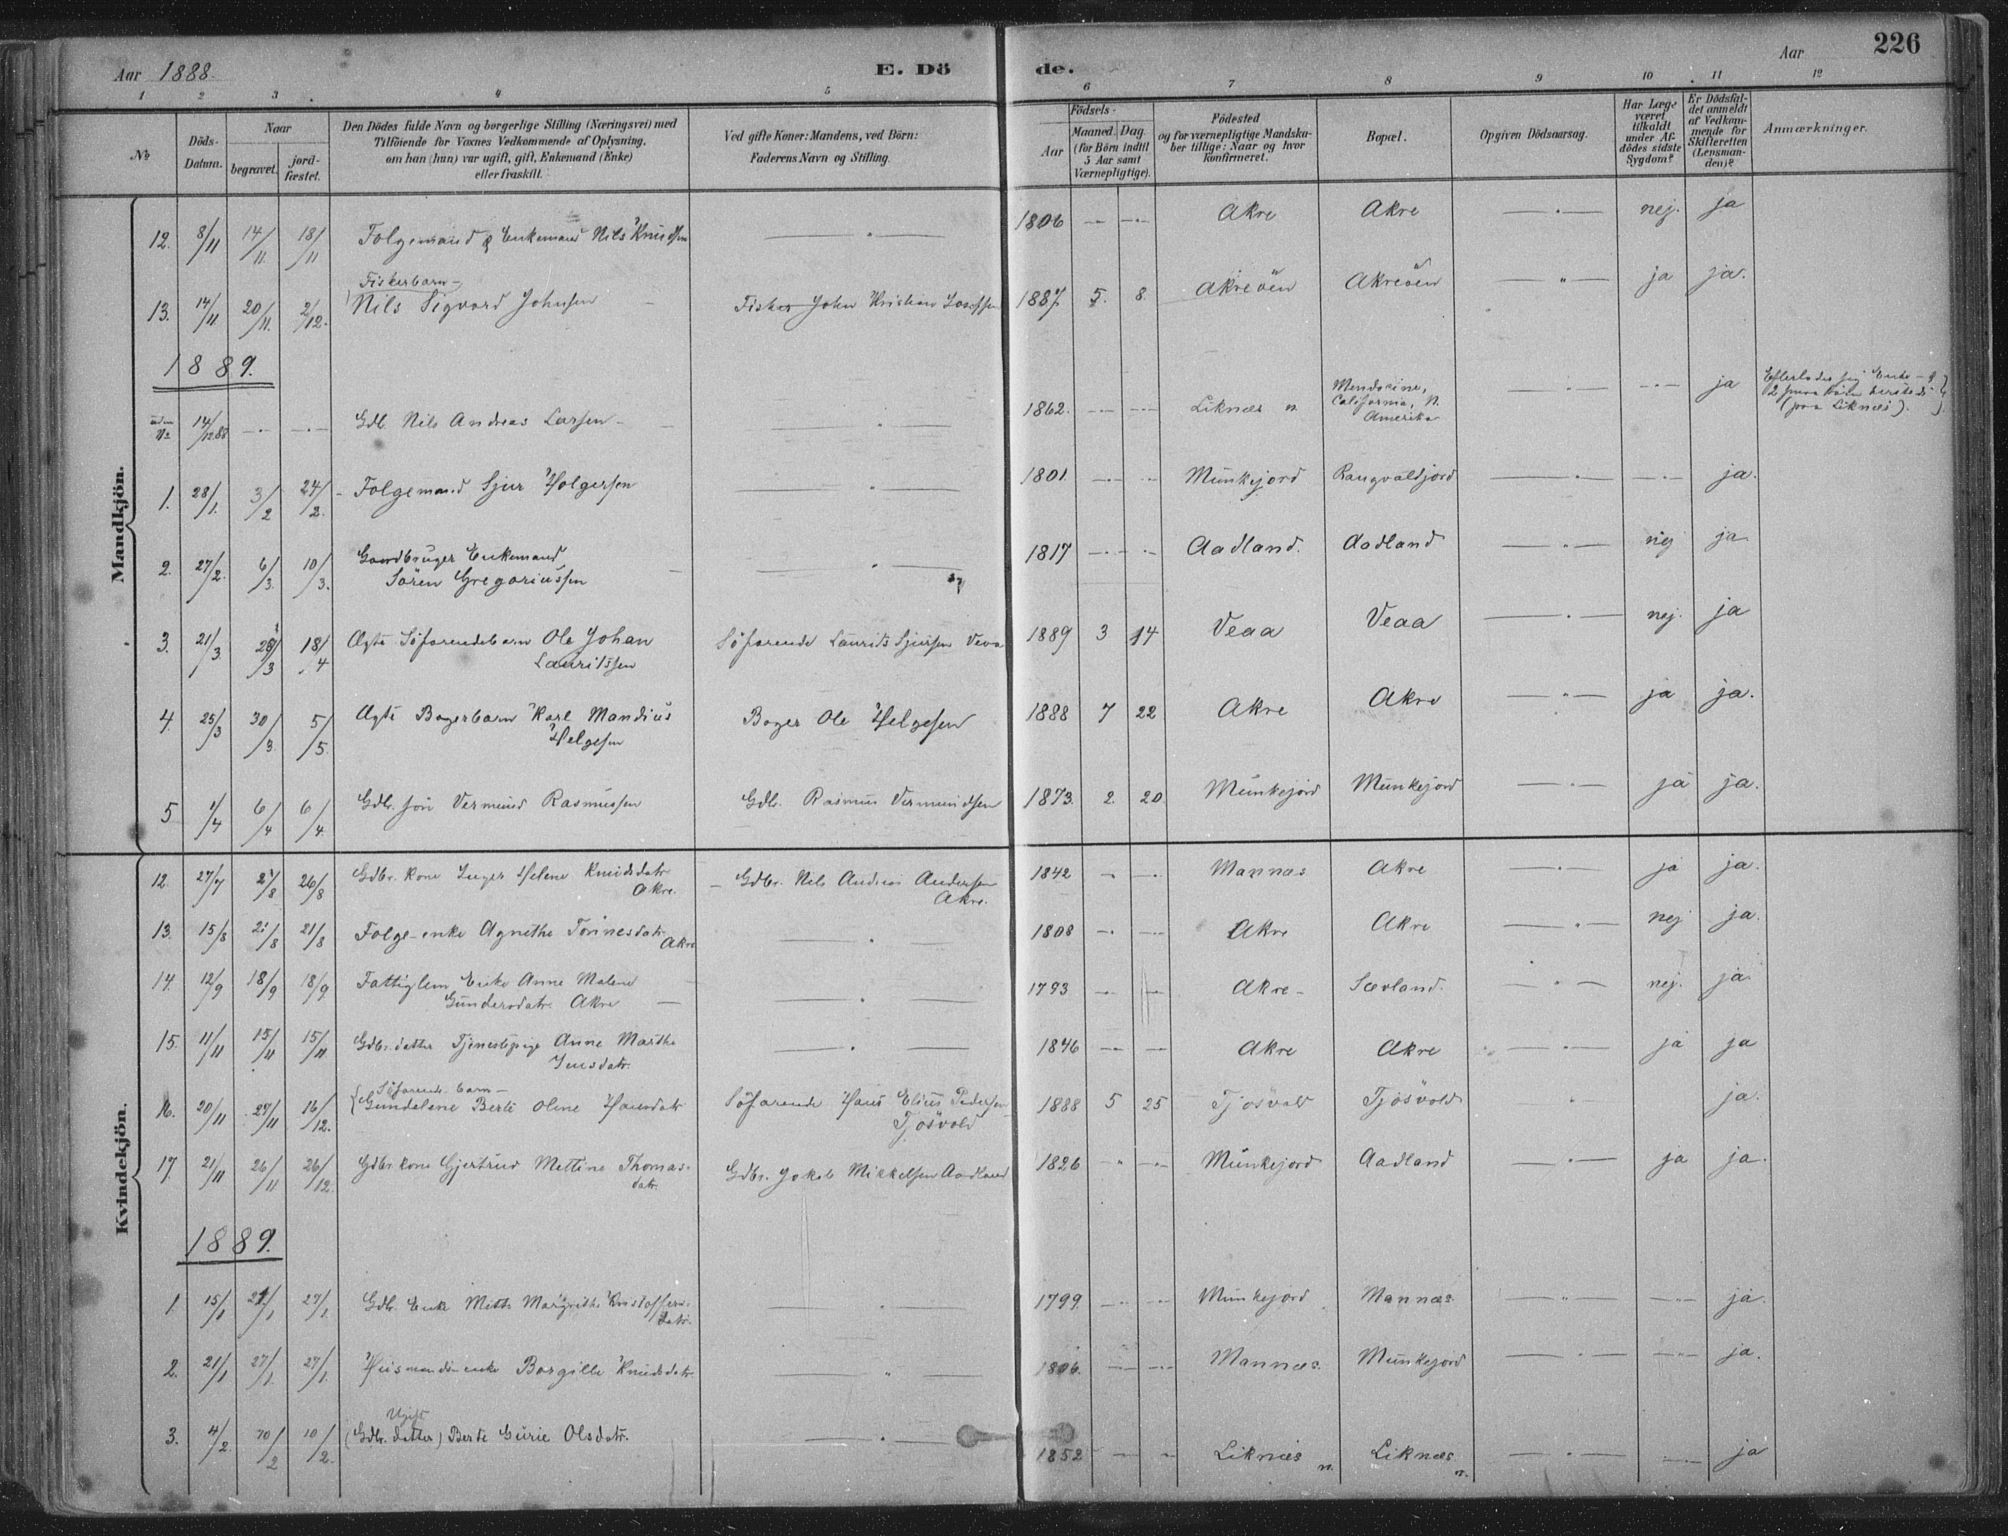 Aar 1888.
E. Dö de.
Aar
226
1 2 3 4 5 6 7 8 9 10 11 12
No
Döds-Datum.
Naar
begravet.
jord-fæstet.
Den Dödes fulde Navn og borgerlige Stilling (Næringsvei) med
Tilföiende for Voxnes Vedkommende af Oplysning,
om han (hun) var ugift, gift, Enkemand (Enke)
eller fraskilt.
Ved gifte Koner: Mandens, ved Börn:
Faderens Navn og Stilling.
Födsels-
Aar
Maaned. Dag.
(for Börn indtil
5 Aar samt
Værnepligtige).
Födested
og for værnepligtige Mandska-
ber tillige: Naar og hvor
konfirmeret.
Bopæl.
Opgiven Dödsaarsag.
Har Læge
været
tilkaldt
under Af-
dödes sidste
Sygdom?
Er Dödsfal-
det anmeldt
af Vedkom-
mende for
Skifteretten
(Lensman-
den)?
Anmærkninger.
Mandkjön.
12. 8/11 14/11 18/11 Folgemand & Enkemand Nils Knudsen — " — 1806 — — Akre Akre — " — nej. ja
Fiskerbarn —
13. 14/11 20/11 2/12. Nils Sigvard Johnsen — Fisker John Kristian 1887. 5. 8. Akreöen Akreöen — " — ja ja.
1889.
uden No 14/12 88 — — Gdb. Nils Andreas Larsen — — " — 1862. — — Liknæs n. Mendocine,
California, N.
Amerika — " — — ja Efterlader sig Enke
2 smaa
(paa Liknæs).
1. 28/1. 3/2 24/2. Folgemand Sjur Holgersen — " — 1801. — — Munkejord Rangvaldjord — " — — ja.
2. 27/2. 6/3. 10/3. Gaardbruger Enkemand
Sören Gregoriussen — — " — 1817 — — Aadland. Aadland — " — nej ja
3. 21/3. 28/3 18/4 Ægte Söfarendebarn Ole Johan
Lauritssen Söfarende Laurits Sjursen Veaa 1889 3 14 Veaa Veaa — " — nej. ja
4. 25/3 30/3. 5/5. Ægte Bagerbarn Karl Mandius
Helgesen Bager Ole Helgesen 1888 7 22 Akre Akre — " — ja ja.
5 1/4 6/4 6/4 Gdbr. sön Vermund Rasmussen Gdb. Rasmus Vermundsen 1873. 2. 20. Munkejord Munkejord — " — ja ja.
Kvindekjön.
12. 27/7 2/8 26/8 Gdbr. kone Inger Helene Knudsdatr.
Akre. — Gdbr. Nils Andreas Andersen
Akre. 1842 — — Mannæs Akre — " — ja ja.
13. 15/8 21/8 21/8 Folge-enke Agnethe Torinesdatr.
Akre — " — 1808 — — Akre Akre — " — nej ja.
14. 12/9 18/9 18/9 Fattiglem Enke Anne Malene
Gundersdatr. Akre — — " — 1793 — — Akre — Sævland. — " — nej. ja
15. 11/11 15/11 15/11 Gdbr. datter Tjenestepige Anne Marthe
Jensdatr. — " — 1846 — — Akre Akre — " — ja ja
Söfarende barn —
16. 20/11 27/11 16/12. Gundelene Berte Oline Hansdatr Söfarende Hans Elius Pedersen
Tjösvold 1888 5 25 Tjösvold Tjösvold " ja.
17. 21/11 26/11. 26/12. Gdbr. kone Gjertrud Mettine Thomas-
datr. Gdbr. Jakob Mikkelsen Aadland 1826 — — Munkejord Aadland — " — ja ja.
1889.
1. 15/1 21/1 27/1. Gdb. Enke Mette Margrethe Kristoffers-
datr. — " — 1799. — — Munkejord Mannæs. — " — — ja.
2. 21/1 27/1. 27/1. Husmandsenke Borgille Knudsdatr. — " — 1806. — — Mannæs. Munkejord — " — — ja.
Ugift
3. 4/2 10/2 10/2. (Gdbr. datter) Berte Gurie Olsdatr. — " — 1852 — — Liknæs n. Liknæs. n. — " — — ja